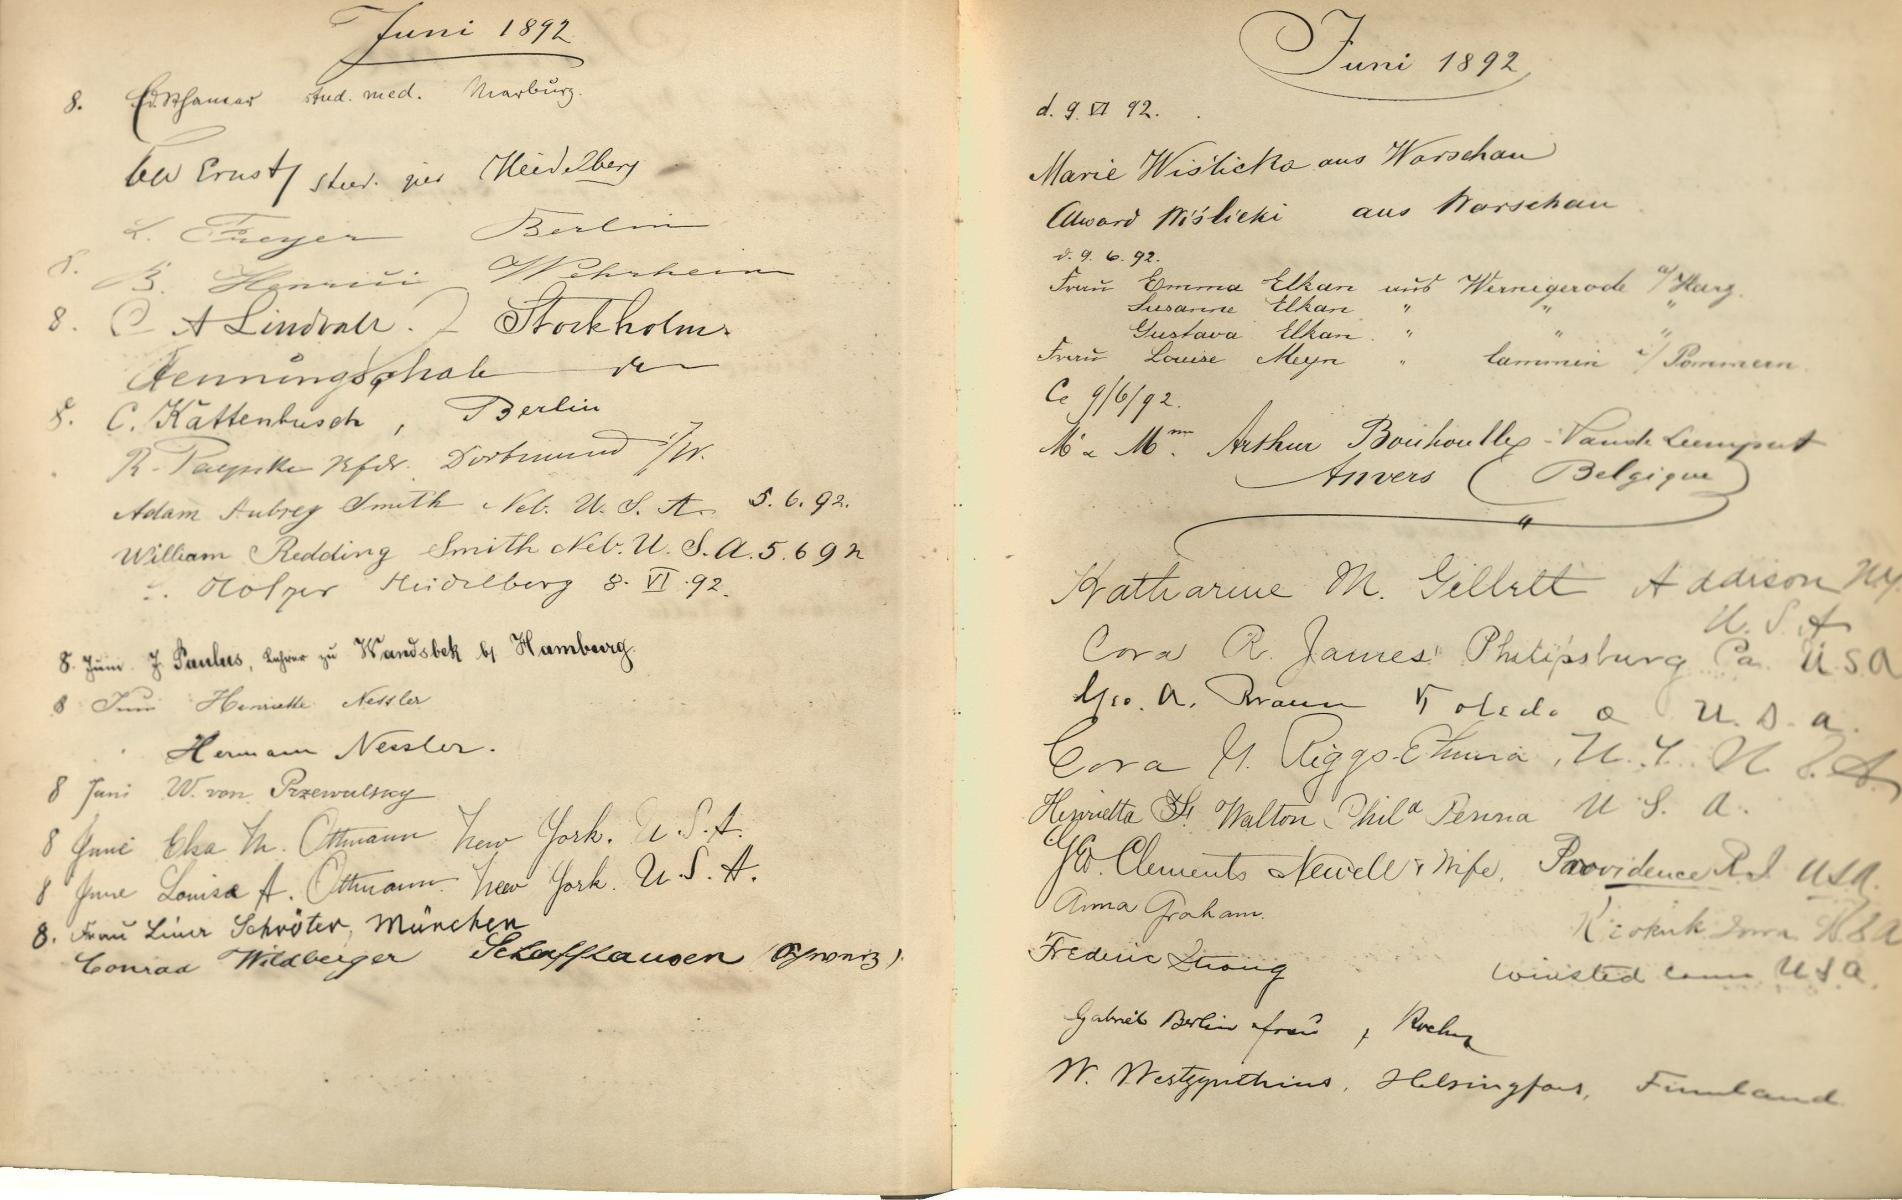 Juni 1892
8. stud. med. Marburg.
Ernst stud. Heidelberg
L. Freyer Berlin
8. B. Henrici Wehrheim
8. C A Lindvall. Stockholm.
Henning
8. C. Kattenbusch, Berlin
R. Dortmund i/W.
Adam Aubrey Smith Neb. U. S. A. 5. 6. 92.
William Redding Smith Neb. U. S. A. 5. 6 92
Holzer Heidelberg 8. VI. 92.
8. Juni. J. Paulus, Lehrer zu Wandsbek b/ Hamburg.
8 Juni Henriette Nessler
Hermann Nessler.
8 Juni W. von Przewulsky
8 June Elsa M. Ottmann New York. U. S. A.
8 June Louisa A. Ottmann New York. U. S. A.
8. Frau Schröter, München
Conrad Wildberger Schaffhausen (Schweiz).
Juni 1892
d. 9. VI 92.
Marie Wiślicka aus Warschau
Edward Wiślicki aus Warschau
d. 9. 6. 92.
Frau Emma Elkan aus Wernigerode a/Harz.
Susanne Elkan " " "
Gustava Elkan. " " "
Frau Louise Meyn " Cammin i/ Pommern.
Ce 9/6/92.
Mr & Mme. Arthur
Anvers (Belgique)
"
Katharine M. Gillett Addison N.Y.
U. S. A
Cora R. James Philipsburg Pa. U. S. A
Geo. A. Braun Toledo O U. S. A.
Cora Riggs Elmira, N. Y. U. S. A.
Henrietta Walton Phila Penna U. S. A.
Geo. Clements Newell & Wife, Providence R. I. U.S.A.
Anna Graham. Keokuk Iowa U S A
Frederic Strong Winsted Conn U S A.
Gabriel Berlin frau,
W. Westzynthius, Helsingfors, Finnland